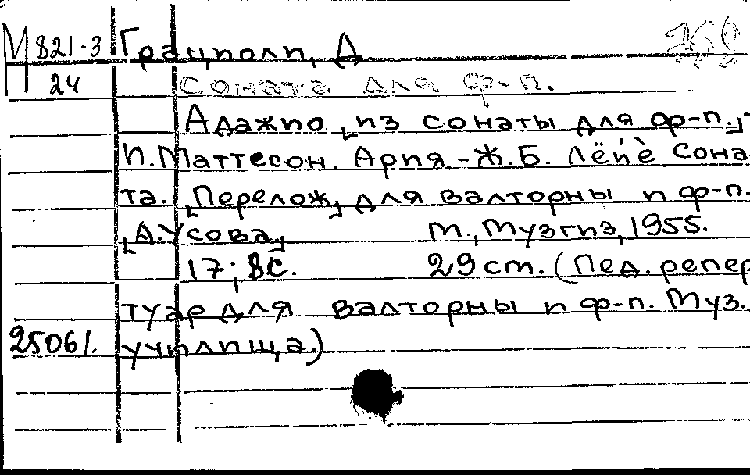 М 821-3 Грациоли, А
24 Соната для ф-п.
Адажио [из сонаты для ф-п.]-
И. Маттесон. Ария - Ж.Б. Лёйе Сона
та. [Перелож] для валторны и ф-п.
[А. Усова] М., Музгиз, 1955.
17; 8с. 29 см. (Пед. репер
туар для валторны и ф-п. Муз.
25061. училища.)